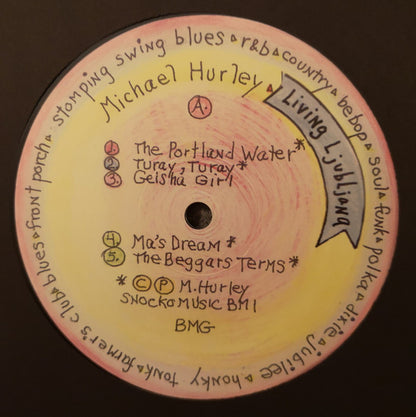 stomping swing blues ▵ r&b ▵ country ▵ bebop ▵ soul ▵ funk ▵ polka ▵ dixie ▵ jubilee ▵ honky tonk ▵ farmer's club ▵ blues ▵ front porch ▵
Michael Hurley ▵
Living Ljubljana
A.
1. The Portland Water*
2. Turay, Turay *
3. Geisha Girl
4. Ma's Dream *
5. The Beggars Terms *
* © Ⓟ M. Hurley
SNOCKOMUSIC BMI
BMG